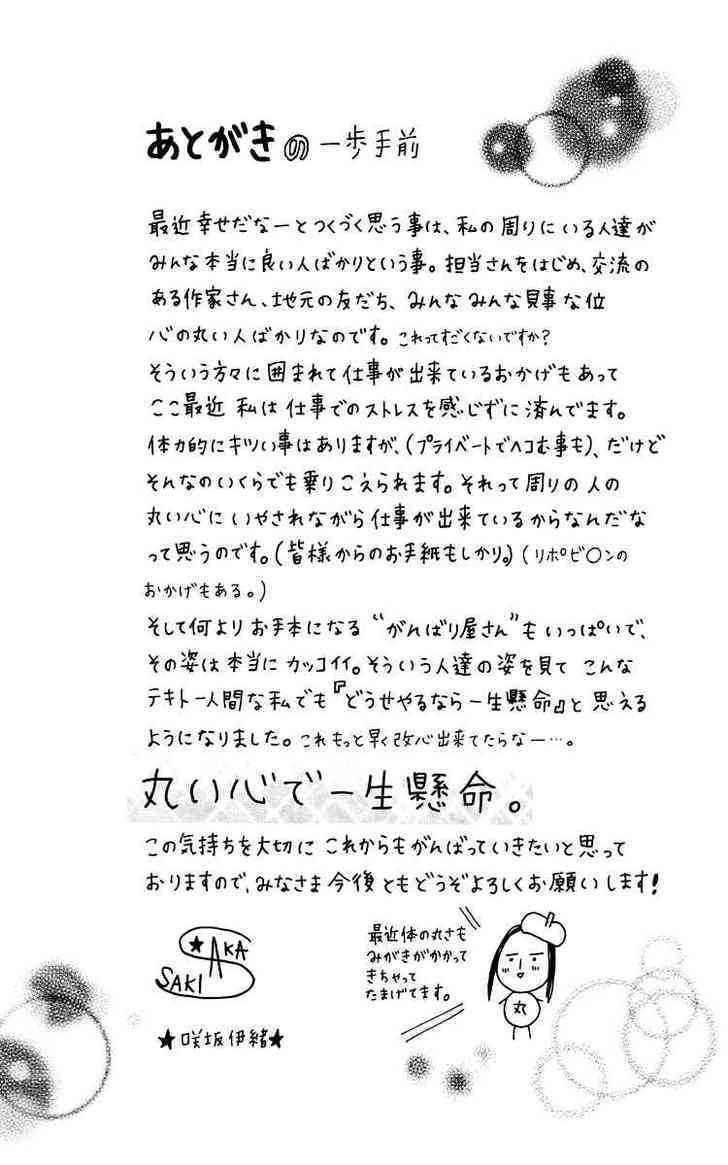 あとがきの一歩手前
最近幸せだなーとつくづく思う事は、私の周りにいる人達が
みんな本当に良い人ばかりという事。担当さんをはじめ、交流の
ある作家さん、地元の友だち、みんなみんな見事な位
心の丸い人ばかりなのです。これってすごくないですか?
そういう方々に囲まれて仕事が出来ているおかげもあって
ここ最近私は仕事でのストレスを感じずに済んでます。
体力的にキツい事はありますが、(プライベートでヘコむ事も)、だけど
そんなのいくらでも乗りこえられます。それって周りの人の
丸い心にいやされながら仕事が出来ているからなんだな
って思うのです。(皆様からのお手紙もしかり。)(リポビ〇ンの
おかげもある。)
そして何よりお手本になる“がんばり屋さん”もいっぱいで、
その姿は本当にカッコイイ。そういう人達の姿を見てこんな
テキトー人間な私でも『どうせやるなら一生懸命』と思える
ようになりました。これもっと早く改心出来てたらなー…。
丸い心で一生懸命。
この気持ちを大切にこれからもがんばっていきたいと思って
おりますので、みなさま今後ともどうぞよろしくお願いします!
★AKA
SAKI
★咲坂伊緒★
最近体の丸さも
みがきがかかって
きちゃって
たまげてます。
丸